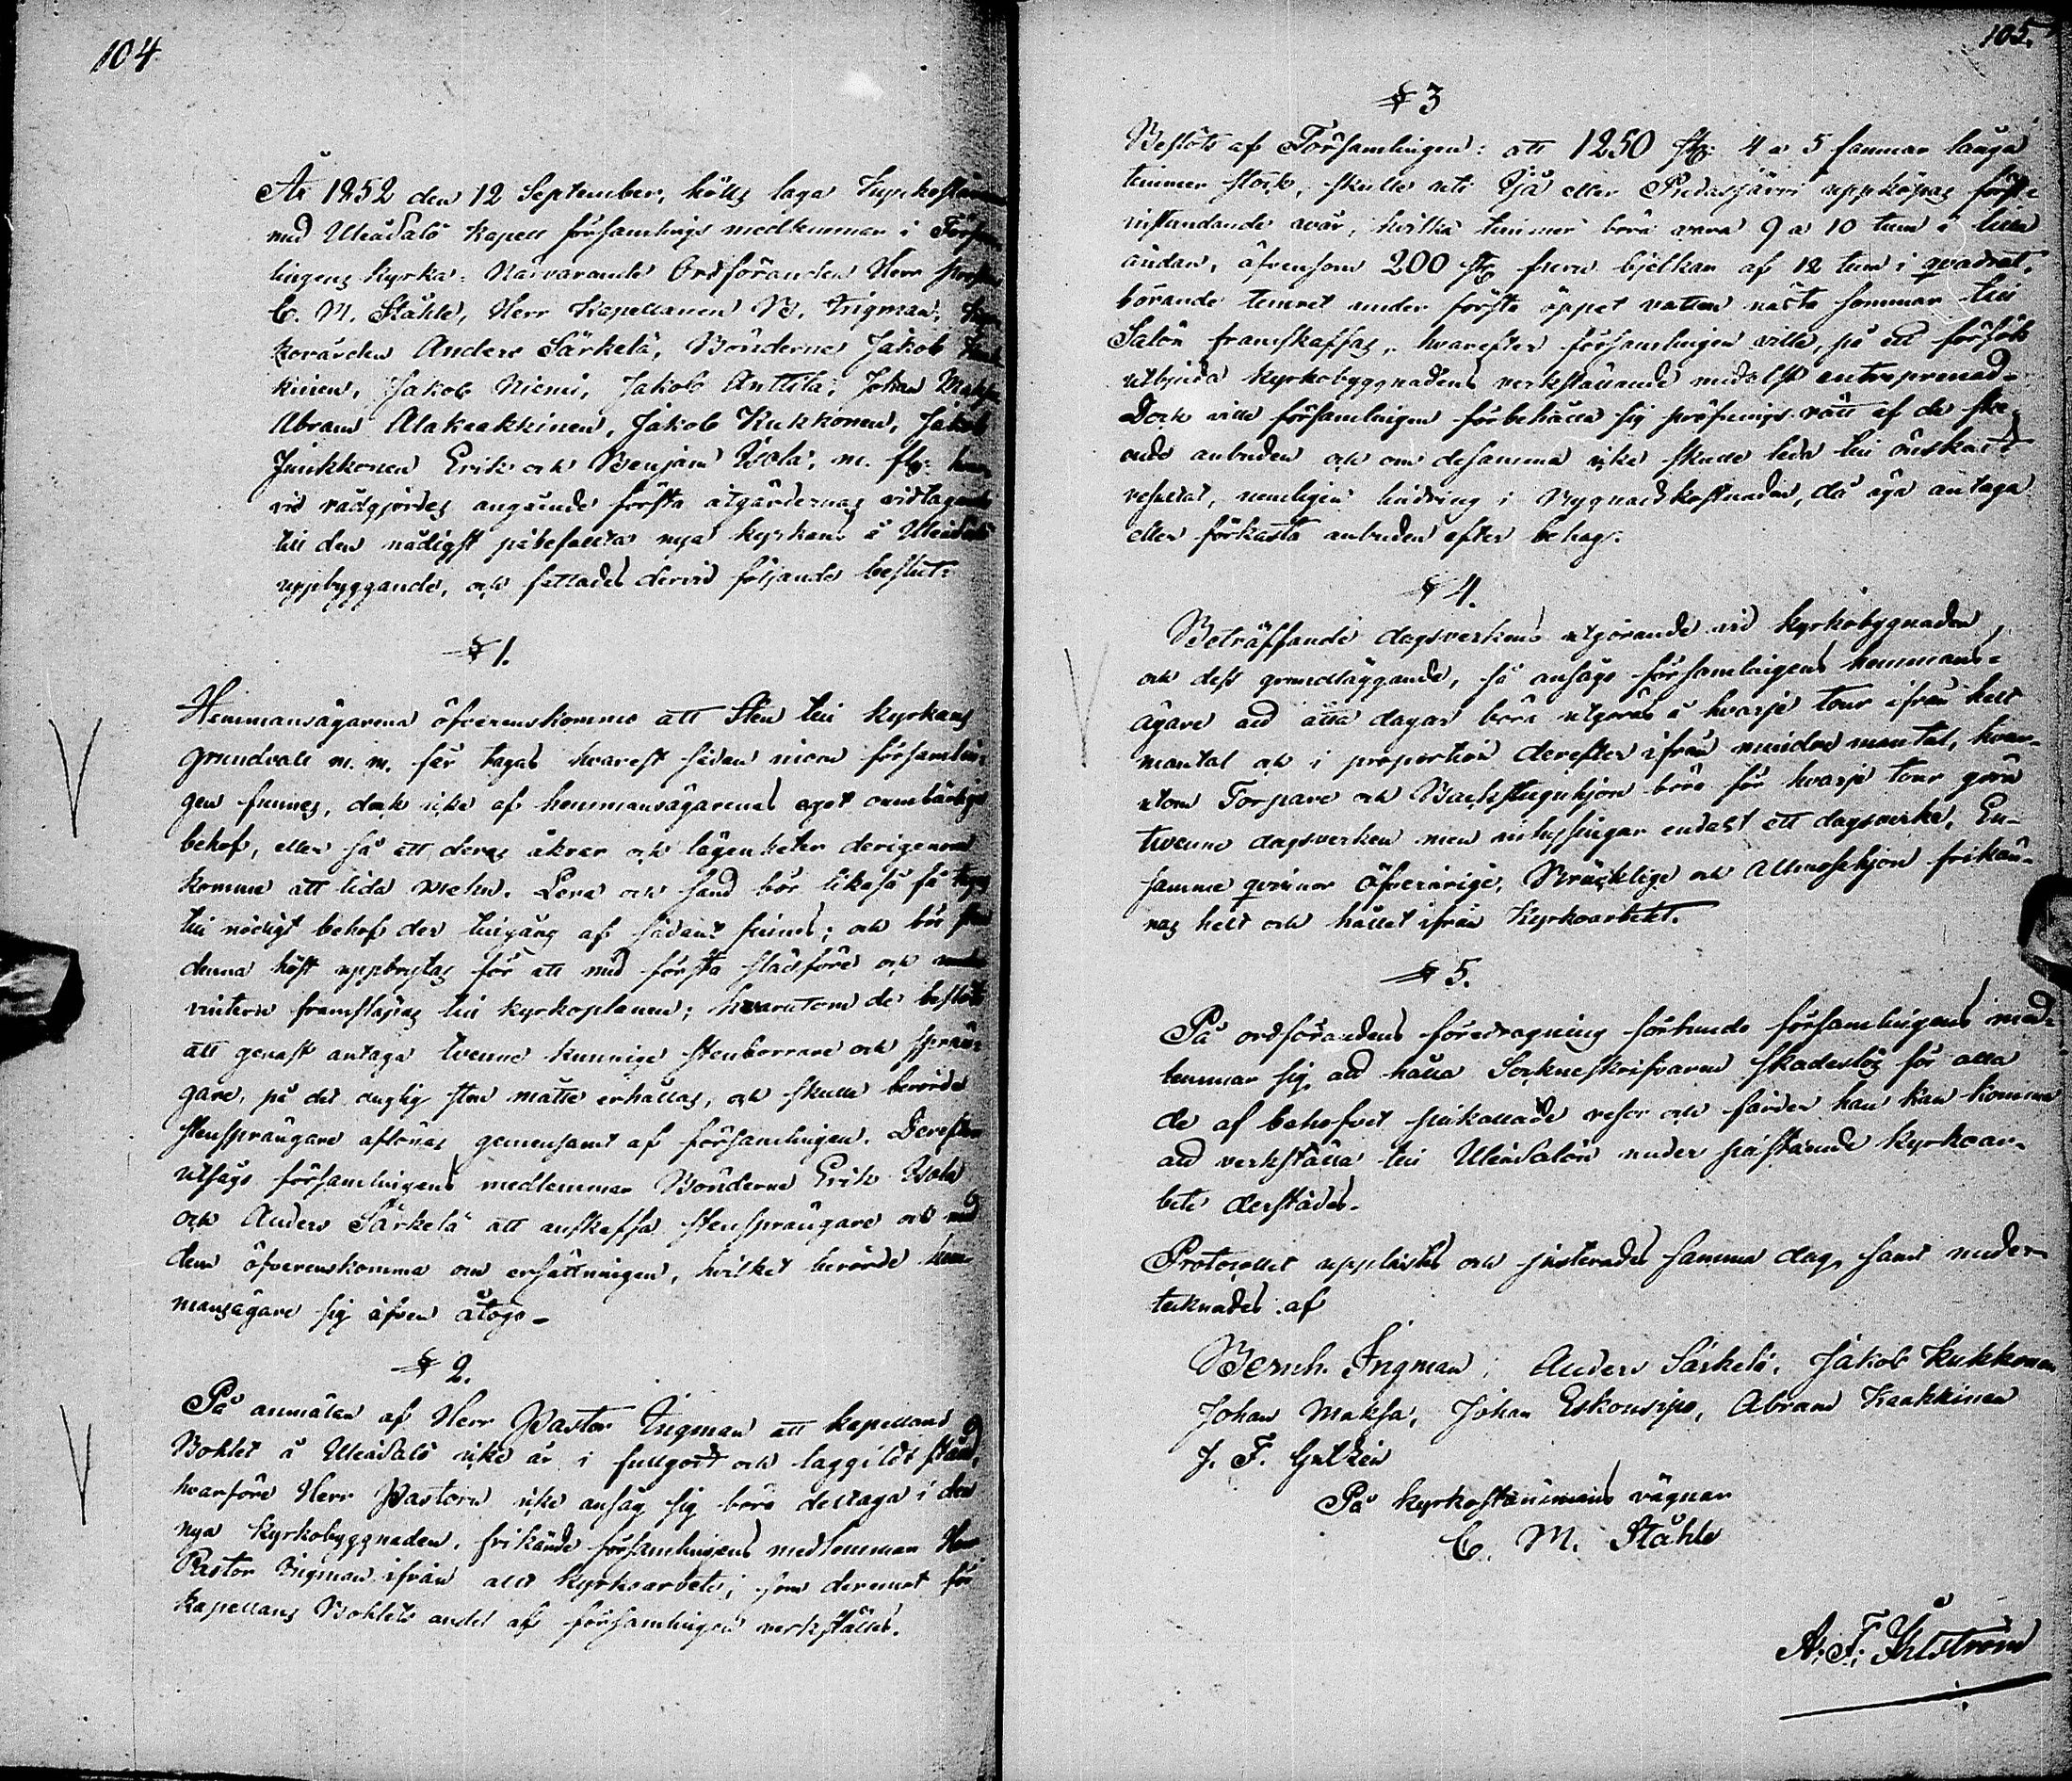 104
År 1852 den 12 September, hölls laga Kyrkostämma
med Uleåsalo Kapell församlings medlemmar i Försam-
lingens Kyrka: Närvarande Ordföranden Herr
C. M. Ståhle, Herr Kapellanen B. Ingman,
kovärden Anders Särkelä, Bönderne Jakob
kinen, Jakob Niemi, Jakob Anttila, Johan Maksa
Abram Alakaakkinen, Jakob Kukkonen, Jakob
Junkkonen Erik och Benjam Isola, m. fl: hvar-
vid rådgjordes angående första åtgärdernas vidtagande
till den nådigst påbefallta nya kyrkans å Uleåsalo
uppbyggande, och fattades dervid följande beslut:
§ 1.
Hemmansägarena öfverenskommo att Sten till kyrkans
grundvall m. m. får tagas hvarest sådan inom församlin-
gen finnes, dock icke af hemmansägarenas eget oumbärliga
behof, eller så att deras åkrar och lägenheter derigenom
komma att lida mehn. Lera och sand bör likaså få tagas
till nödigt behof der tillgång af sådant finnes; och bör sten
denna höst uppbrytas för att med första slädföre och under
vintern framsläpas till kyrkoplanen; hvarutom de beslöto
att genast antaga tvenne kunnige stenborrare och sprän-
gare, på det duglig sten måtte erhållas, och skulle berörde
stensprängare aflönas gemensamt af församlingen. Derefter
utsågs församlingens medlemmar Bönderne Erik Isola
och Anders Särkelä att anskaffa stensprängare och med
dem öfverenskomma om ersättningen, hvilket berörde hem-
mansägare sig äfven åtogo.
§ 2.
På anmälan af Herr Pastor Ingman att kapellans
Bohlet å Uleåsalo icke är i fullgodt och laggildt stånd,
hvarföre Herr Pastorn icke ansåg sig böra deltaga i den
nya kyrkobyggnaden, frikände församlingens medlemmar Herr
Pastor Ingman ifrån allt kyrkoarbete; som deremot för
kapellans Bohlets andel af församlingen verkställes.
105.
§ 3
Beslöts af Församlingen: att 1250 st: 4 a 5 famnar långa
timmer stock, skulle uti Ijå eller Pudasjärvi uppköpas först-
instundande vår, hvilka timmer böra vara 9 a 10 tum i lill
ändan, äfvensom 200 st furu bjelkar af 12 tum i qvadrat,
börande timret under första öppet vatten nästa sommar till
Salon framskaffas, hvarefter församlingen ville, på ett försök
utbjuda kyrkobyggnadens verkställande medelst entreprenad.
Dock ville församlingen förbehålla sig pröfnings rätt af de ske-
ende anbuden och om desamma icke skulle leda till önskadt
resultat, nemligen lindring i Bygnadskostnaden, då äga antaga
eller förkasta anbuden efter behag.
§ 4.
Beträffande dagsverkens utgörande vid kyrkobygnaden,
och dess grundläggande, så ansågo församlingens hemmans-
ägare att åtta dagar böra utgöras å hvarje tour ifrån helt
mantal och i proportion derefter ifrån mindre mantal, hvar-
utom Torpare och Backstuguhjon böra för hvarje tour göra
tvenne dagsverken men inhysingar endast ett dagsverke. En-
samme qvinnor öfverårige, Bräcklige och Allmosehjon frikän-
nas helt och hållet ifrån Kyrkoarbetet.
§ 5.
På ordförandens föredragning förbundo församlingens med-
lemmar sig att hålla Sockneskrifvaren skadeslös för alla
de af behofvet påkallade resor och färder han kan komma
att verkställa till Uleåsalon under påstående kyrkoar-
bete derstädes.
Protocollet upplästes och justerades samma dag, samt under-
tecknades af
Bernh. Ingman, Anders Särkelä, Jakob Kukkonen
Johan Maksa, Johan Eskonsipo, Abram Kaakkinen
J. F.
På kyrkostämmans vägnar
C. M. Ståhle
A. F. Ihlström